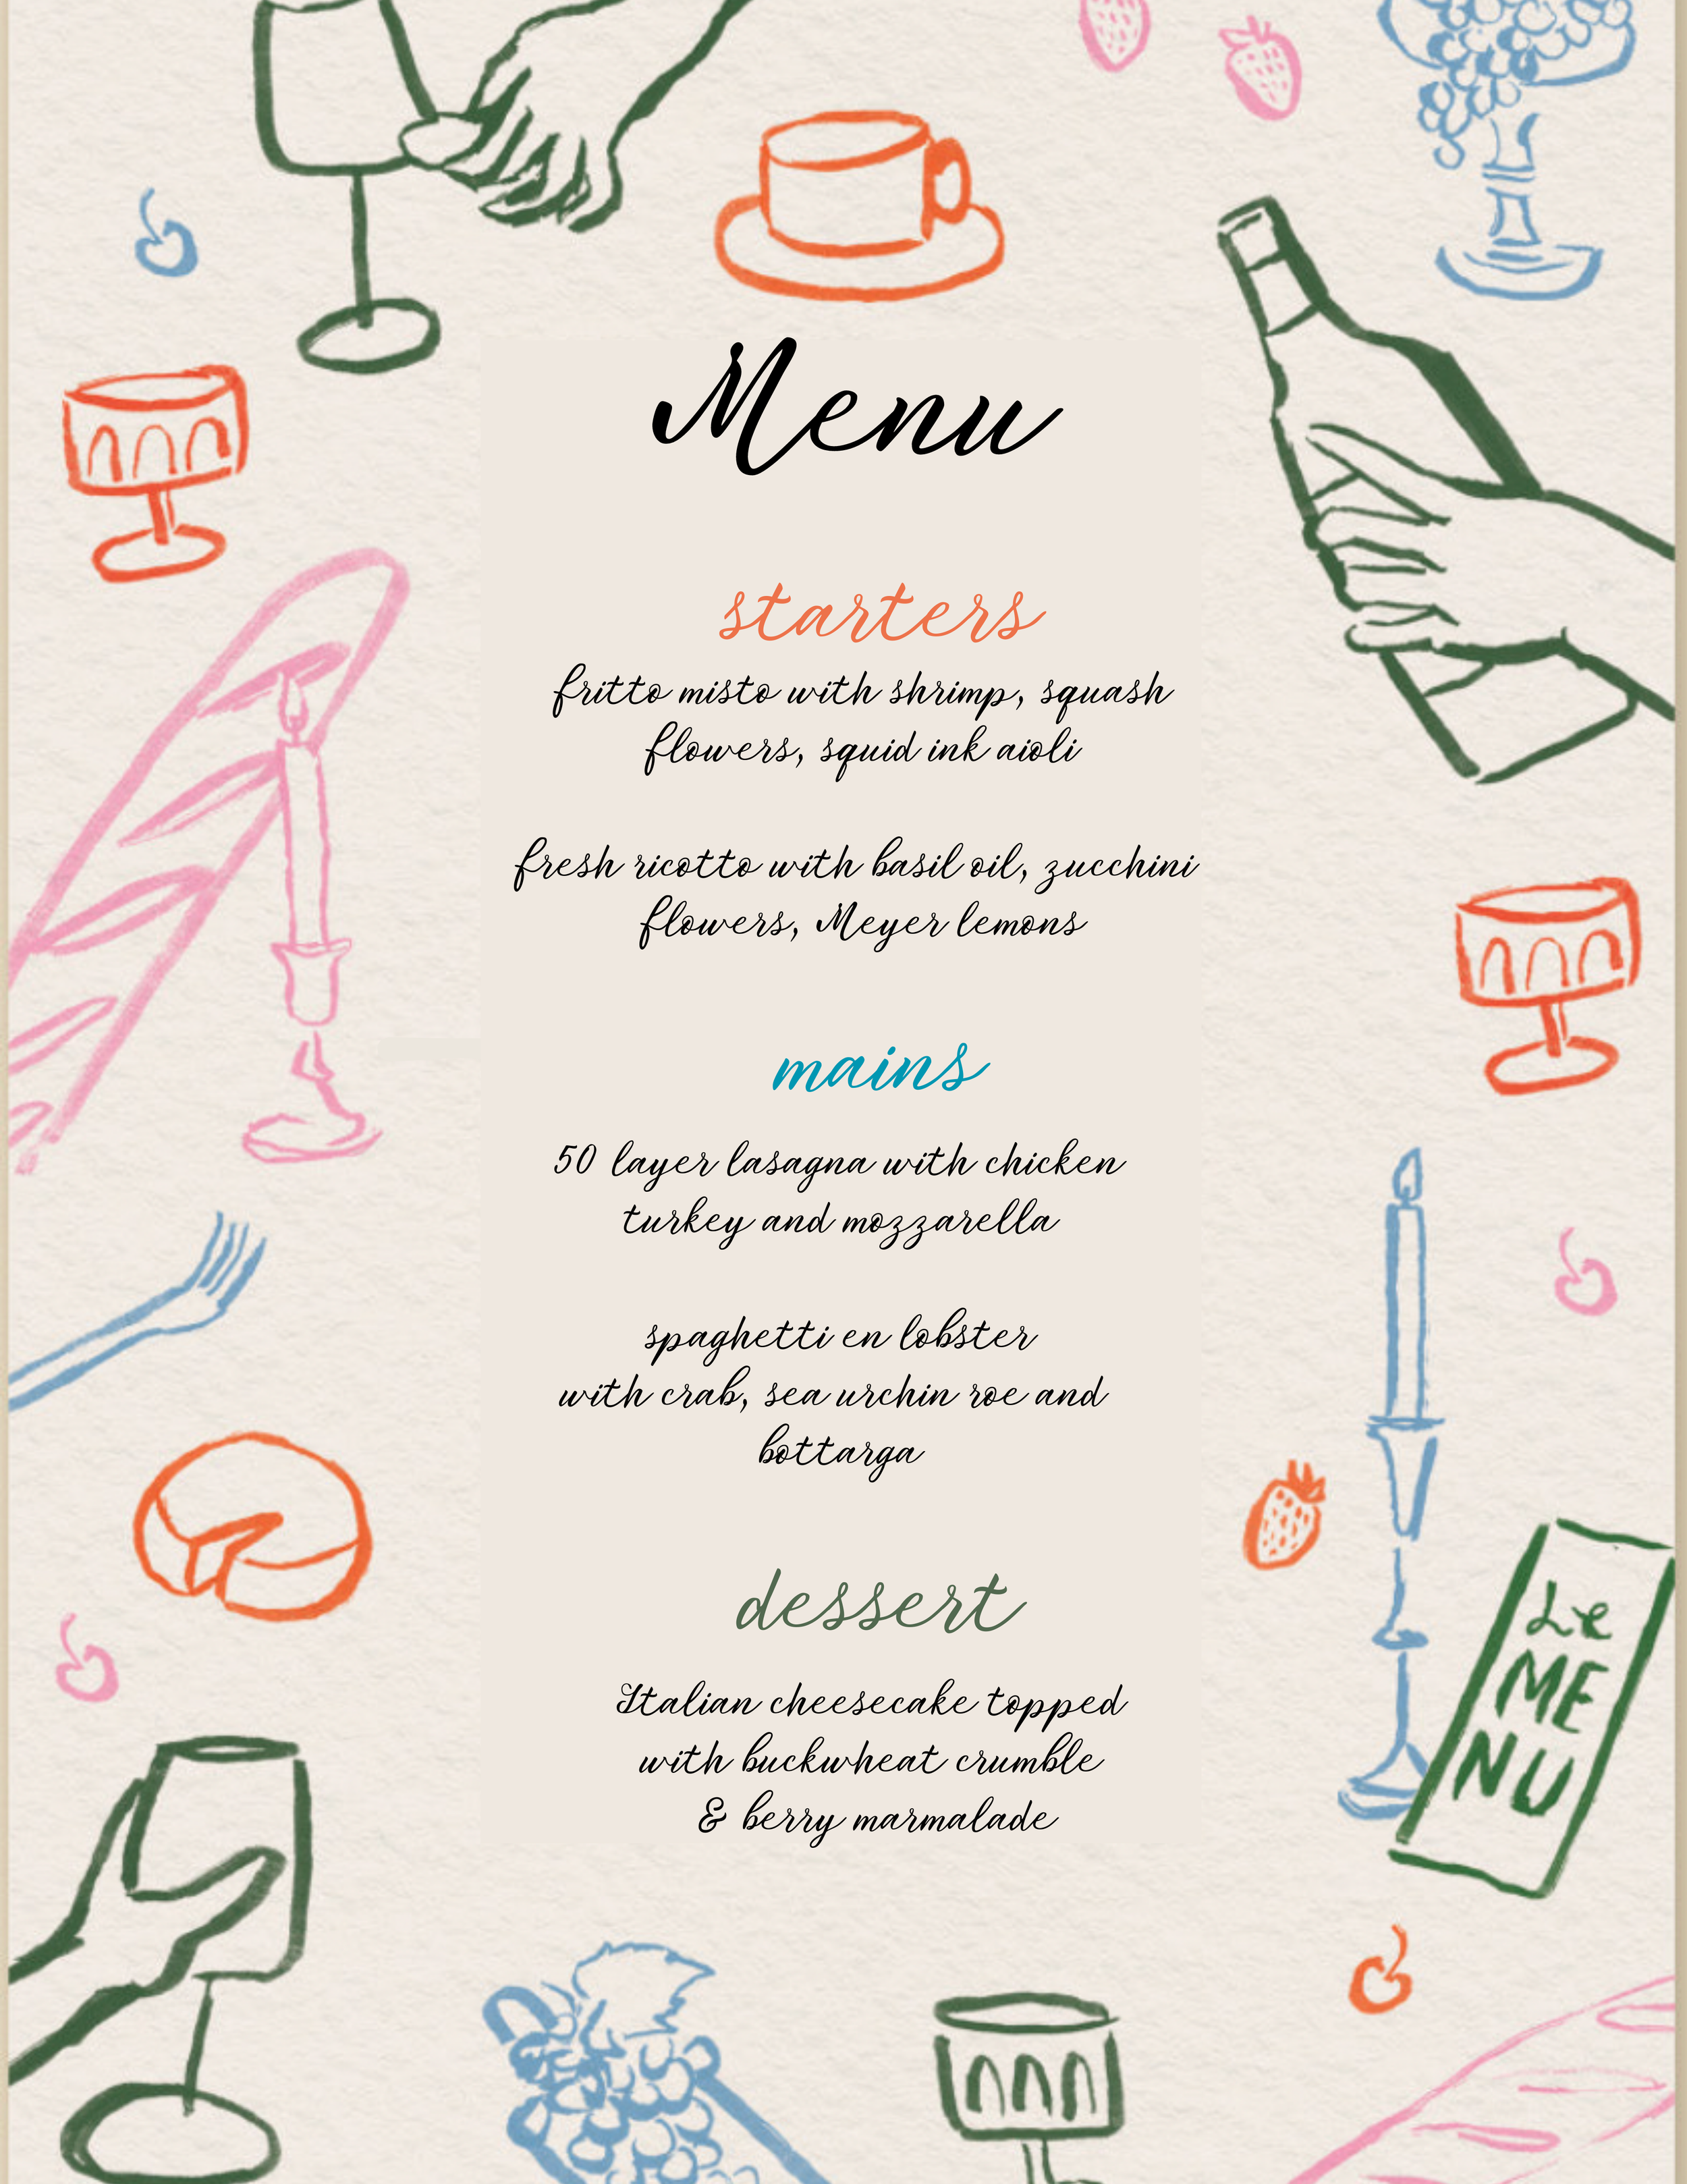 Menu
starters
fritto misto with shrimp, squash
flowers, squid ink aioli
fresh ricotto with basil oil, zucchini
flowers, Meyer lemons
mains
50 layer lasagna with chicken
turkey and mozzarella
spaghetti en lobster
with crab, sea urchin roe and
bottarga
dessert
Italian cheesecake topped
with buckwheat crumble
& berry marmalade
Le
ME
NU